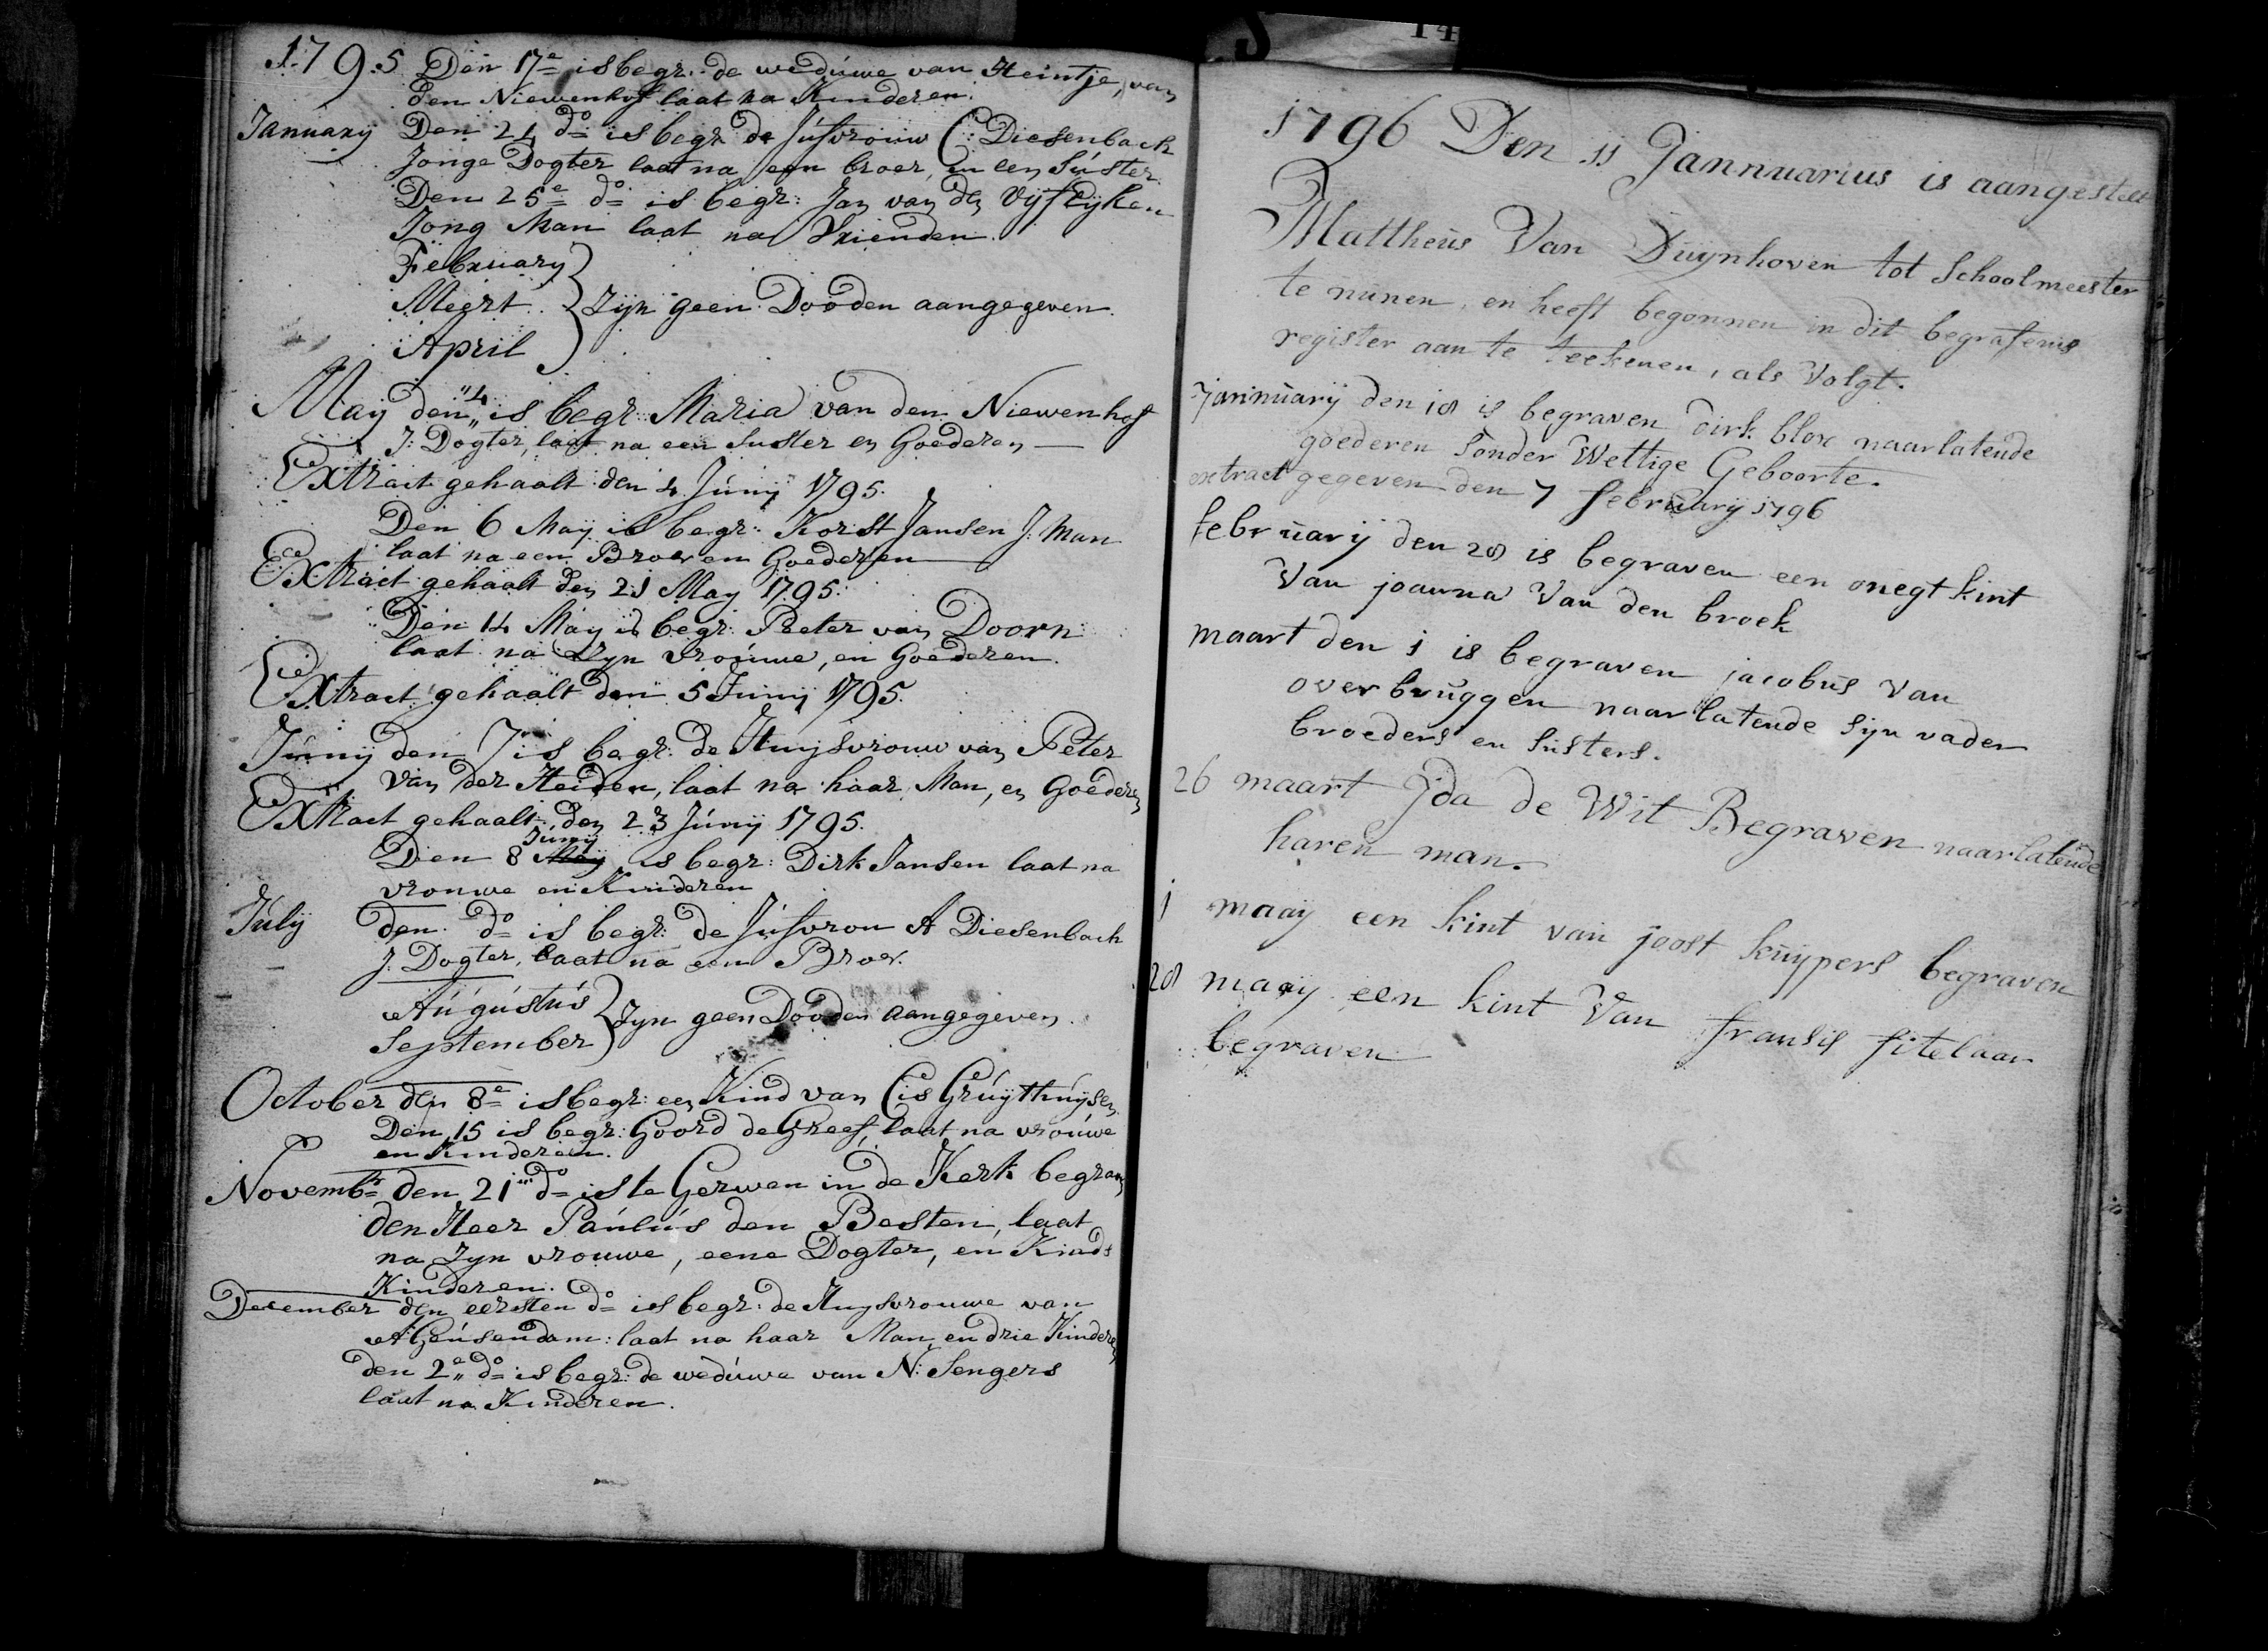 1795 Den 17e is begr: de weduwe van Heintje van
den Niewenhof laat na Kinderen.
January Den 21 do is begr de Jufvrouw C: Diesenbach
Jonge Dogter laat na een broer, en een Suster.
Den 25e do is begr: Jan van den Vyfeyken
Jong Man laat na Vrienden.
February
Meert
April
Zijn geen Dooden aangegeven.
Maij den 4 is begr: Maria van den Niewenhof
J: Dogter, laat na een Suster en Goederen
Extract gehaalt den 4 Junij 1795.
Den 6 Maij is begr: Korst Jansen J: Man
laat na een Broer en Goederen
Extract gehaalt den 21 May 1795.
Den 14 May is begr: Peeter van Doorn
laat na Zyn vrouwe, en Goederen.
Extract gehaalt den 5 Junij 1795.
Junij den 7 is begr: de Huijsvrouw van Peter
van der Heiden, laat na haar Man, en Goederen
Extract gehaalt den 23 Junij 1795.
Junij
Den 8 May is begr: Dirk Jansen laat na
vrouwe en Kinderen
Julij den do is begr: de Jufvrou A Diesenbach
J: Dogter, laat na een Broer.
Augustus
September
Zyn geen Dooden aangegeven.
October den 8e is begr: een Kind van Cis Gruythuysen
Den 15 is begr: Goord de Greef, laat na vrouwe
en Kinderen.
Novembr den 21 do is te Gerwen in de Kerk begraven
den Heer Paulus den Besten, laat
na Zyn vrouwe, eene Dogter, en Kinds
Kinderen.
December den eersten do is begr: de Huysvrouwe van
A: Geusendam: laat na haar Man, en drie Kinderen
den 2e do is begr: de weduwe van N: Sengers
laat na Kinderen.
14
1796 Den 11 Jannuarius is aangestelt
Mattheus Van Duynhoven tot Schoolmeester
te nunen, en heeft begonnen in dit begrafenis
register aan te teekenen, als Volgt.
jannuarij den 18 is begraven dirk blox naarlatende
goederen sonder Wettige Geboorte.
extract gegeven den 7 februarij 1796
februarij den 28 is begraven een onegt kint
Van joanna Van den broek
maart den 1 is begraven jacobus Van
overbruggen naarlatende sijn vader
broeders en susters.
26 maart Ida de Wit Begraven naarlatende
haren man.
1 maaij een kint van joost kuijpers begraven
28 maaij een kint Van fransis fitelaar
begraven